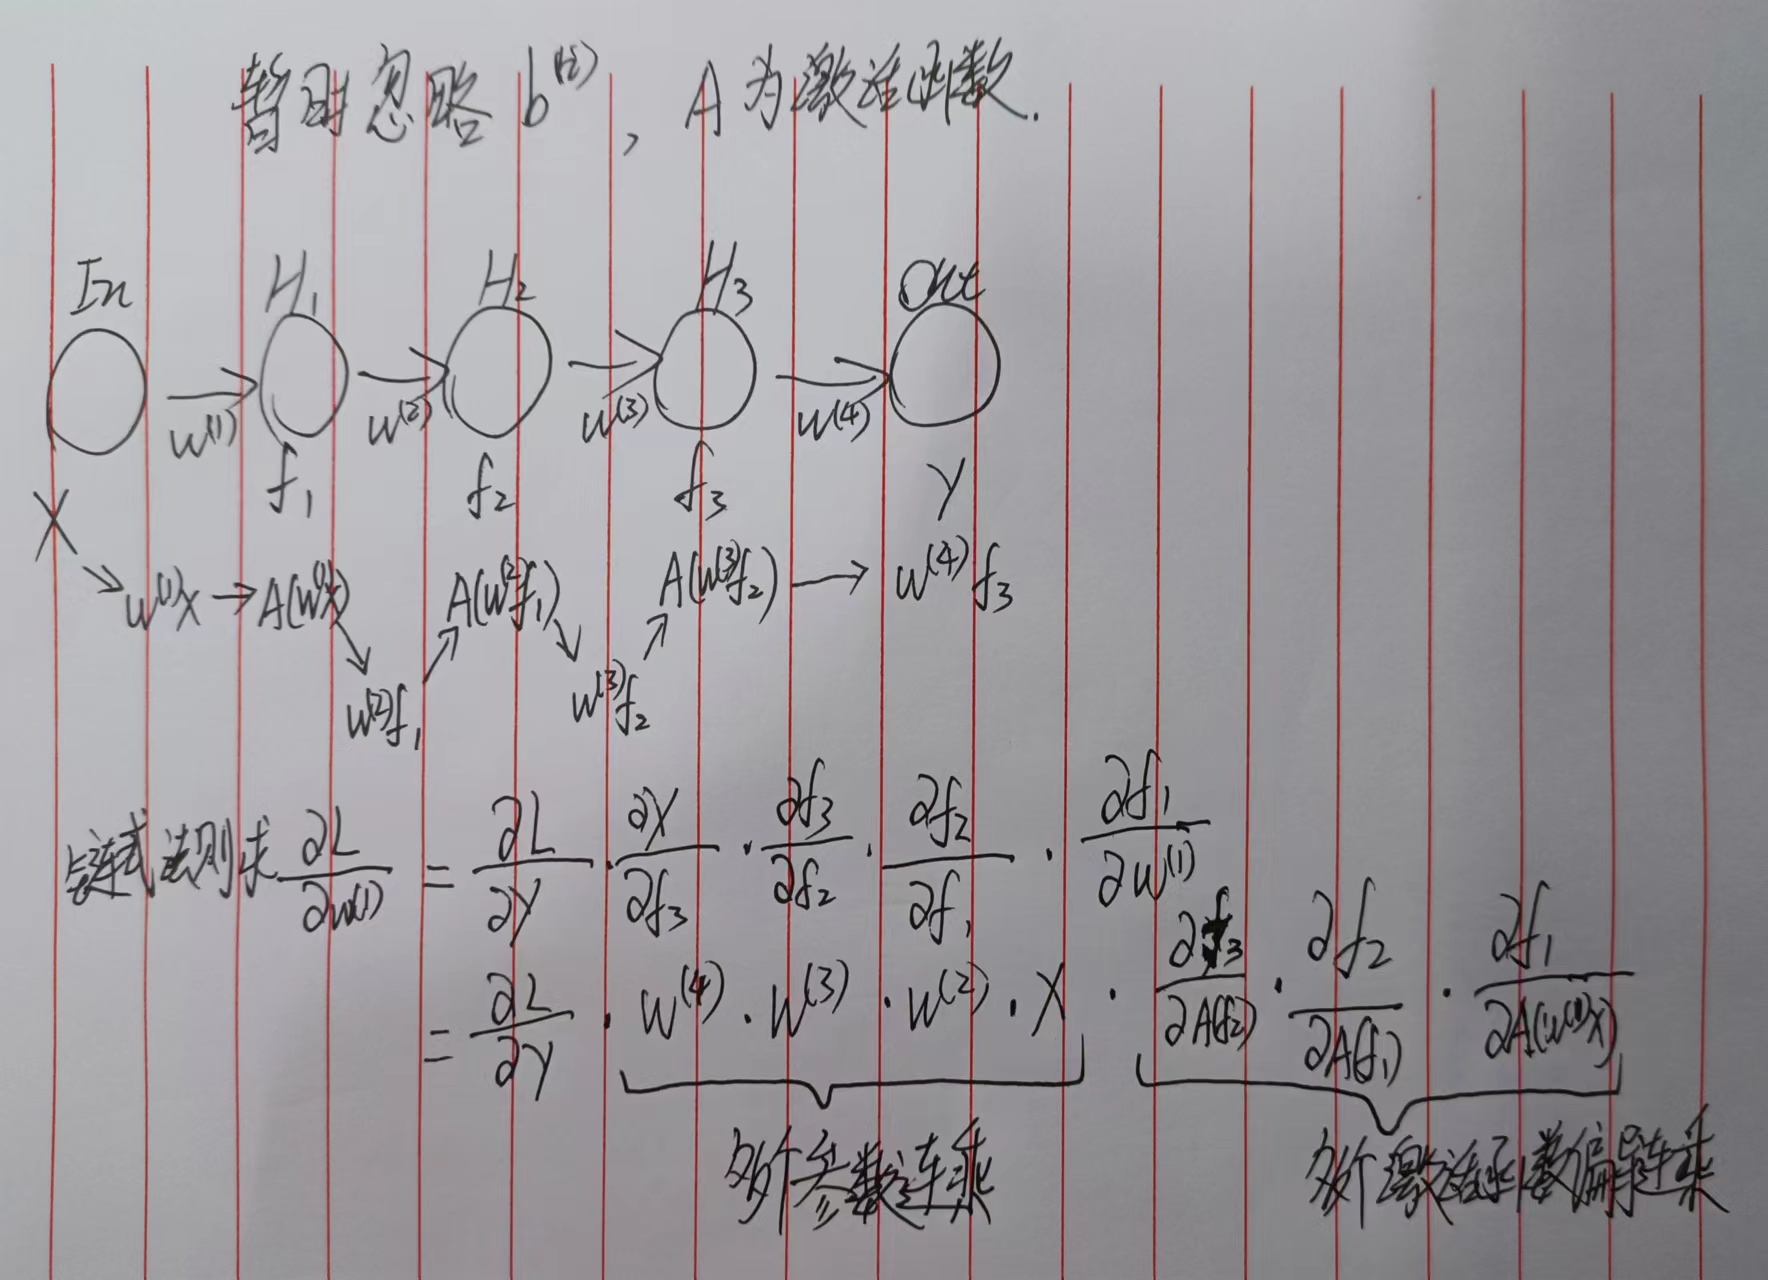 暂时忽略 b⁽ⁱ⁾, A为激活函数.
In H₁ H₂ H₃ Out
w⁽¹⁾ w⁽²⁾ w⁽³⁾ w⁽⁴⁾
X f₁ f₂ f₃ Y
w⁽¹⁾X → A(w⁽¹⁾X) A(w⁽²⁾f₁) A(w⁽³⁾f₂) → w⁽⁴⁾f₃
w⁽²⁾f₁ w⁽³⁾f₂
链式法则求 ∂L/∂w⁽¹⁾ = ∂L/∂Y · ∂Y/∂f₃ · ∂f₃/∂f₂ · ∂f₂/∂f₁ · ∂f₁/∂w⁽¹⁾
= ∂L/∂Y · w⁽⁴⁾ · w⁽³⁾ · w⁽²⁾ · X · ∂f₃/∂A(f₂) · ∂f₂/∂A(f₁) · ∂f₁/∂A(w⁽¹⁾X)
多个参数连乘 多个激活函数偏导连乘